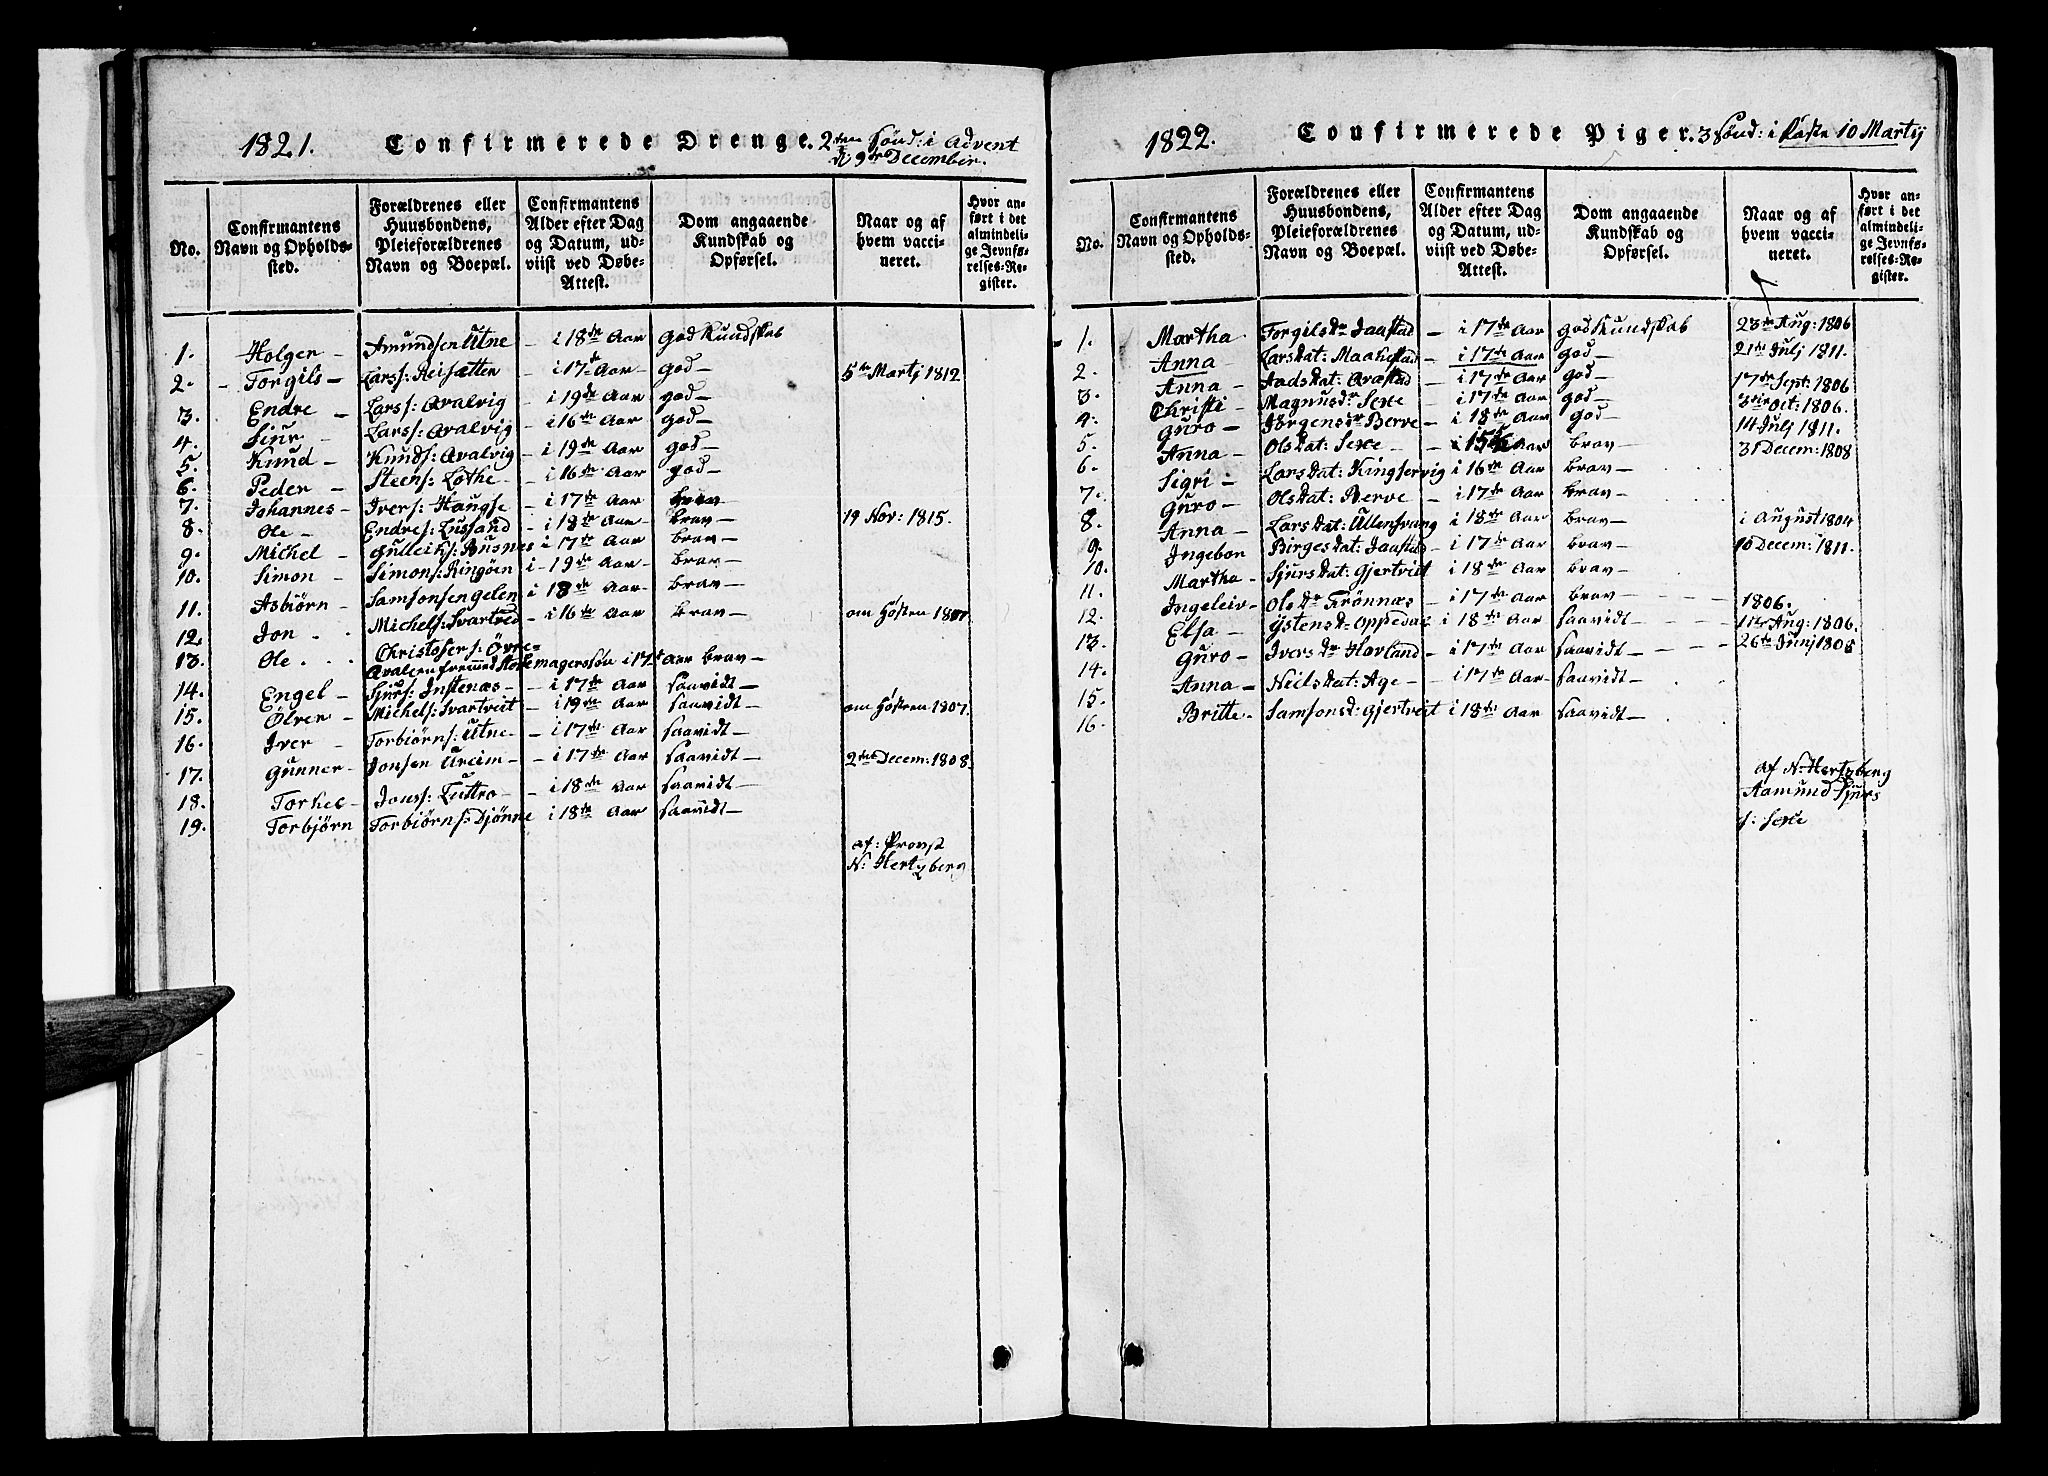 1821. Confirmerede Drenge. 2den Sönd: i Advent
d 9de December.
No. | Confirmantens Navn og Opholds-sted. | Forældrenes eller Huusbondens, Pleieforældrenes Navn og Boepæl. | Confirmantens Alder efter Dag og Datum, ud-viist ved Døbe-Attest. | Dom angaaende Kundskab og Opførsel. | Naar og af hvem vacci-neret. | Hvor an-ført i det almindeli-ge Jevnfø-relses-Re-gister.
1. Holger – Amundsen Utne – i 18de Aar god Kundskab
2. – Torgils – Larss: Reisætter – i 17de Aar – god – 5te Martj 1812
3. Endre – Larss: Qvalvig – i 19de Aar god –
4. Siur – Larss: Qvalvig – i 16de Aar god –
5. Knud – Knuds: Qvalvig – i 19de Aar god –
6. Peder – Steens: Lothe – – i 16de Aar god –
7. Johannes – Ivers: Haugse – i 17de Aar brav –
8. Ole – Endres: Lusand – i 18de Aar – brav – 19 Nov: 1815.
9. Michel – Gulleiks: Busnes i 17de Aar brav –
10. Simon – Simons: Ringöen i – 19de Aar – brav –
11. Asbiörn – Samsonsen gelen i 18de Aar brav –
12. Jon . . Michels: Svartved – i 16de Aar brav – om Høsten 1807.
13. Ole . . . Christofers: Övre-
Qvalen i 17de Aar brav –
14. Engel – Sjurs: Instenæs – – i 17de Aar saavidt –
15. Ölver – Michels: Svartveit – i 19de Aar saavidt – om Høsten 1807.
16. Iver – Torbiörns: Utne – – i 17de Aar saavidt –
17. Gunner – Jonsen Ureim – – i 17de Aar saavidt – 2den Decem: 1808.
18. Torkel – Jonss: Luttro – – i 18de Aar saavidt –
19. Torbjörn Torbiörns: Djönne i 18de Aar saavidt –
af: Provst
N: Hertzberg
1822. Confirmerede Piger. 3 Sönd: i Faste 10 Martij
No. | Confirmantens Navn og Opholds-sted. | Forældrenes eller Huusbondens, Pleieforældrenes Navn og Boepæl. | Confirmantens Alder efter Dag og Datum, ud-viist ved Døbe-Attest. | Dom angaaende Kundskab og Opførsel. | Naar og af hvem vacci-neret. | Hvor an-ført i det almindeli-ge Jevnfø-relses-Re-gister.
1. Martha Torgilsdr Jaastad – i 17de Aar god Kundskab 23de Aug: 1806
2. Anna Larsdat: Maakestad – i 17de Aar god – 21de Julj 1811.
3. Anna – Aadsdat: Qvæstad – i 17de Aar god – 17de Sept: 1806
4. Christi – Magnusdr Sexe – i 17de Aar god – 3die Oct: 1806.
5. Guro – Jörgensdr Berve – i 18de Aar god – 14 Julj 1811.
6. Anna – Olsdat: Sexe – Aar brav – 31 Decem: 1808
7. Sigri – Larsdat: Kingservig i 16de Aar brav –
8. Guro – Olsdat: Berve – i 17de Aar brav –
9. Anna – Larsdat: Ullensvang i 18de Aar brav – i August 1804
10. Ingebor Birgesdat: Jaastad – i 17de Aar brav – 10 Decem: 1811.
11. Martha – Sjursdat: Gjertveit i 18de Aar brav –
12. Ingeleiv – Olsdr Trönnæs – i 17de Aar brav – 1806.
13. Elsa – Ystensd: Oppedal i 18de Aar saavidt – 11te Aug: 1806.
14. Guro – Iversdr Hovland – i 17de Aar saavidt – 26de Junj 1808
15. Anna – Neilsdat: Age – – i 17de Aar – saavidt –
16. Britte – Samsonsd: Gjertveit i 18de Aar saavidt –
af N: Hertzberg
Aamund Sjurs
s: Sexe